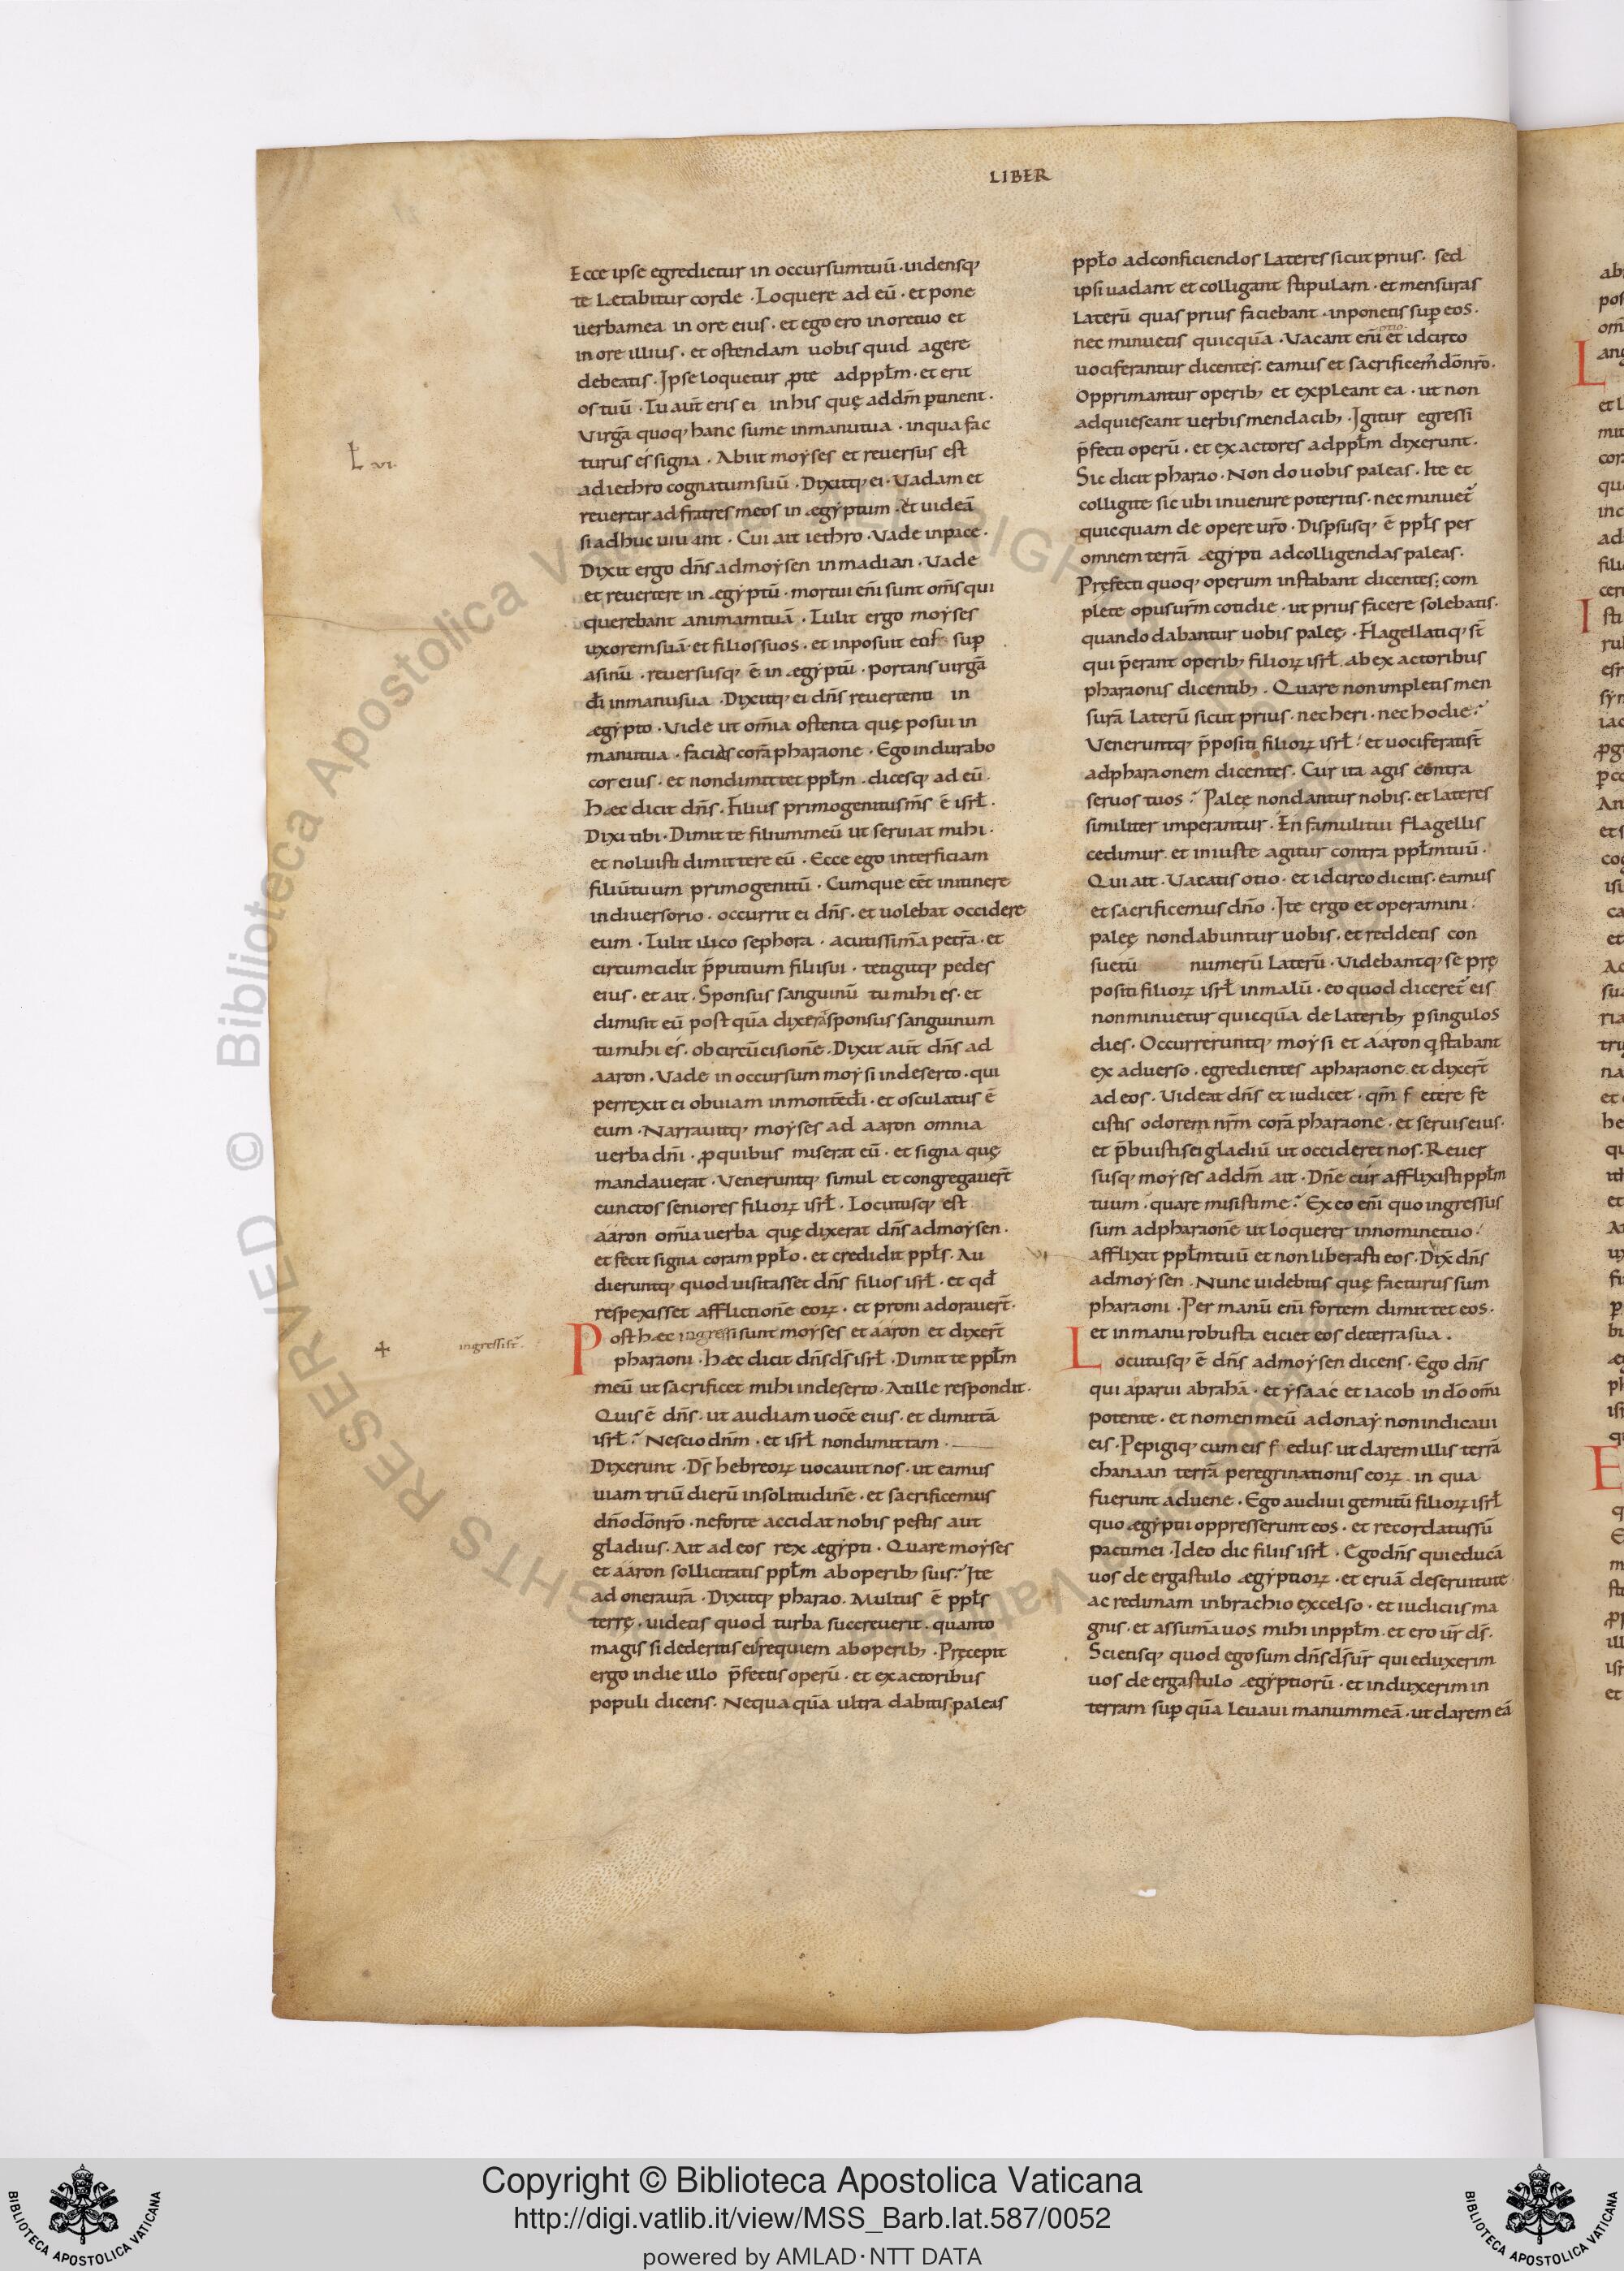 LIBER
Ecce ipse egredietur in occursumtuū · uidensq;
te Letabitur corde · Loquere ad eū · et pone
uerbamea in ore eius · et ego ero inoretuo et
in ore illius · et ostendam uobis quid agere
debeatis · Ipse loquetur ꝓte adppłm · et erit
os tuū · Tu aut̄ eris ei in his quę addm̄ ꝑtinent ·
Virgā quoq; hanc sume inmanutua · inqua fac
turus es signa · Abiit moyses et reuersus est
adiethro cognatumsuū · Dixitq; ei · Vadam et
reuertar ad fratres meos in ægyptum · et uideā
si adhuc uiuant · Cui ait iethro · Vade inpace ·
Dixit ergo dn̄s admoysen inmadian · Vade
et reuertere in ægyptū · mortui eni᷉ sunt om̄s qui
querebant animamtuā · Tulit ergo moyses
uxoremsuā et filios suos · et inposuit eos sup̱
asinū · reuersusq; ē in ægyptū · portans uirgā
dī inmanusua · Dixitq; ei dn̄s reuertenti in
ægypto · Vide ut om̄ia ostenta quę posui in
manutua · facies corā pharaone · Ego indurabo
cor eius · et nondimittet ppłm · dicesq; ad eū ·
Hæc dicit dn̄s · Filius primogenitus m̄s ē isrł ·
Dixi tibi · Dimitte filiummeū ut seruiat mihi ·
et noluisti dimittere eū · Ecce ego interficiam
filiūtuum primogenitū · Cumque eēt initinere
indiuersorio · occurrit ei dn̄s · et uolebat occidere
eum · Tulit ilico sephora · acutissimā petrā · et
circumcidit p̄putium filiisui · tetigitq; pedes
eius · et ait · Sponsus sanguinū tu mihi es · et
dimisit eū post quā dixerat sponsus sanguinum
tumihi es · ob circūcisionē · Dixit aut̄ dn̄s ad
aaron · Vade in occursum moysi indeserto · qui
perrexit ei obuiam inmontē dī · et osculatus ē
eum · Narrauitq; moyses ad aaron omnia
uerba dn̄i · ꝓquibus miserat eū · et signa quę
mandauerat · Veneruntq; simul et congregauer̄t
cunctos seniores filioꝝ isrł · Locutusq; est
aaron om̄ia uerba quę dixerat dn̄s admoysen ·
et fecit signa coram ppło · et credidit ppłs · Au
dieruntq; quod uisitasset dn̄s filios isrł · et qd̄
respexisset afflictionē eoꝝ · et proni adorauer̄t ·
Post hæc ingressi sunt moyses et aaron et dixer̄t
pharaoni · hæc dicit dn̄s ds̄ isrł · Dimitte ppłm
meū ut sacrificet mihi indeserto · At ille respondit ·
Quis ē dn̄s · ut audiam uocē eius · et dimittā
isrł · Nescio dn̄m · et isrł nondimittam ·
Dixerunt · Ds̄ hebreoꝝ uocauit nos · ut eamus
uiam triū dierū insolitudinē · et sacrificemus
dn̄o dōnr̄o · neforte accidat nobis pestis aut
gladius · Ait ad eos rex ægypti · Quare moyses
et aaron sollicitatis ppłm aboperib; suis · Ite
ad oneraur̄a · Dixitq; pharao · Multus ē ppłs
terrę · uidetis quod turba succreuerit · quanto
magis si dederitis eis requiem aboperib; · Pręcepit
ergo indie illo p̄fectis operū · et exactoribus
populi dicens · Nequa quā ultra dabitis paleas
ppło adconficiendos Lateres sicut prius · sed
ipsi uadant et colligant stipulam · et mensuras
Laterū quas prius faciebant · inponetis sup̱ eos ·
nec minuetis quicquā · Vacant eni᷉ et idcirco
otio
uociferantur dicentes · eamus et sacrificem᷒ dōnr̄o ·
Opprimantur operib; et expleant ea · ut non
adquiescant uerbis mendacib; · Igitur egressi
p̄fecti operū · et exactores adppłm dixerunt ·
Sic dicit pharao · Non do uobis paleas · Ite et
colligite sic ubi inuenire poteritis · nec minuet᷑
quicquam de opere ur̄o · Disp̱susq; ē ppłs per
omnem terrā ægypti adcolligendas paleas ·
Pręfecti quoq; operum instabant dicentes · com
plete opusur̄m cotidie · ut prius facere solebatis ·
quando dabantur uobis paleę · Flagellatiq; st̄
qui p̄erant operib; filioꝝ isrł · ab exactoribus
pharaonis dicentib; · Quare nonimpletis men
surā Laterū sicut prius · nec heri · nec hodie
Veneruntq; p̄positi filioꝝ isrł · et uociferatist̄
adpharaonem dicentes · Cur ita agis contra
seruos tuos · Paleę nondantur nobis · et Lateres
similiter imperantur · En famulitui flagellis
cedimur · et iniuste agitur contra ppłmtuū ·
Qui ait · Vacatis otio · et idcirco dicitis · eamus
et sacrificemus dn̄o · Ite ergo et operamini ·
paleę nondabuntur uobis · et reddetis con
suetū numerū Laterū · Videbantq; se prę
positi filioꝝ isrł inmalū · eo quod diceret᷑ eis
nonminuetur quicquā de laterib; ꝑ singulos
dies · Occurreruntq; moysi et aaron q stabant
ex aduerso · egredientes apharaone · et dixer̄t
ad eos · Videat dn̄s et iudicet · qm̄ f etere fe
cistis odorem nr̄m corā pharaone · et seruis eius ·
et p̄buistis ei gladiū ut occideret nos · Reuer
susq; moyses addm̄ ait · Dn̄e cur afflixisti ppłm
tuum · quare misistime · Ex eo eni᷉ quo ingressus
sum adpharaonē ut loquerer innominetuo ·
afflixit ppłmtuū et non liberasti eos · Dix̄ dn̄s
admoysen · Nunc uidebitis quę facturus sum
pharaoni · Per manū eni᷉ fortem dimittet eos ·
et inmanu robusta eiciet eos deterrasua ·
Locutusq; ē dn̄s admoysen dicens · Ego dn̄s
qui aparui abrahā · et ysaac et iacob indō om̄i
potente · et nomen meū adonay nonindicaui
eis · Pepigiq; cum eis f edus · ut darem illis terrā
chanaan terrā peregrinationis eoꝝ · in qua
fuerunt aduene · Ego audiui gemitū filioꝝ isrł
quo ægyptii oppresserunt eos · et recordatussū
pactimei · Ideo dic filiis isrł · Ego dn̄s qui educā
uos de ergastulo ægyptioꝝ · et eruā deseruitute
ac redimam inbrachio excelso · et iudiciis ma
gnis · et assumā uos mihi inppłm · et ero ur̄ ds̄ ·
Scietisq; quod ego sum dn̄s ds̄ ur̄ qui eduxerim
uos de ergastulo ægyptiorū · et induxerim in
terram sup̱ quā Leuaui manummeā · ut darem eā
Ł VI
ingressi st̄
© Biblioteca Apostolica Vaticana
RIGHTS RESERVED
Copyright © Biblioteca Apostolica Vaticana
http://digi.vatlib.it/view/MSS_Barb.lat.587/0052
powered by AMLAD·NTT DATA
BIBLIOTECA APOSTOLICA VATICANA
BIBLIOTECA APOSTOLICA VATICANA